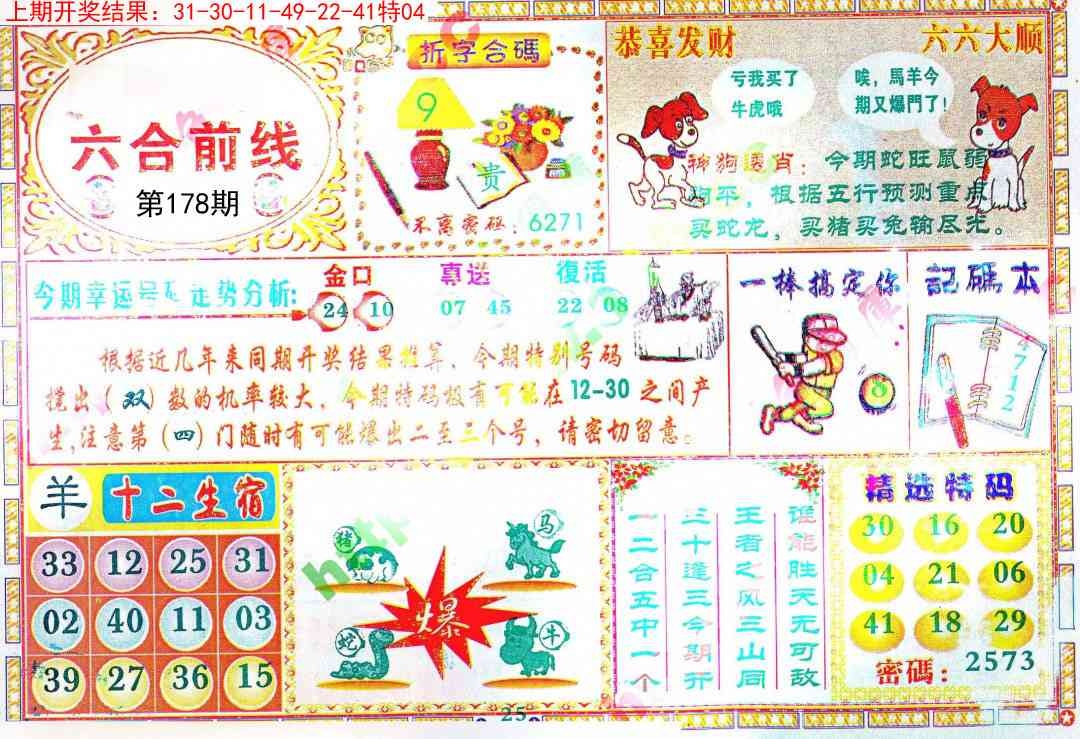 上期开奖结果: 31-30-11-49-22-41特04
六合前线
第178期
折字合碼
9
贵
不离密码: 6271
恭喜发财
六六大顺
亏我买了
牛虎哦
唉，馬羊今
期又爆門了!
神狗透肖: 今期蛇旺鼠弱
狗平，根据五行预测重点
买蛇龙，买猪买兔输尽光。
今期幸运号码走势分析:
金口
24 10
真送
07 45
復活
22 08
根据近几年来同期开奖结果推算，今期特别号码
搅出(双)数的机率较大，今期特码极有可能在12-30之间产
生,注意第(四)门随时有可能爆出二至三个号，请密切留意。
一棒搞定你
8
記碼本
4712
羊
十二生宿
33 12 25 31
02 40 11 03
39 27 36 15
猪
马
爆
蛇
牛
谁能胜天无可敌
王者之风三山同
三十逢三今期开
一二合五中一个
精选特码
30 16 20
04 21 06
41 18 29
密碼: 2573
25